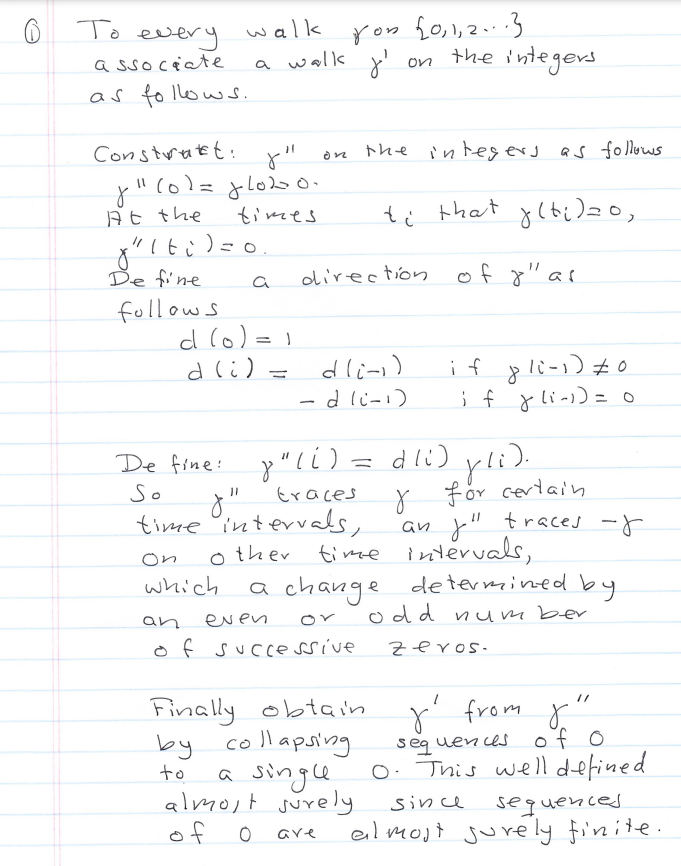 ① To every walk γ on {0,1,2...}
associate a walk γ' on the integers
as follows.
Construct: γ" on the integers as follows
γ"(0) = γ(0) = 0.
At the times t_i that γ(t_i)=0,
γ"(t_i)=0.
Define a direction of γ" as
follows
d(0) = 1
d(i) = d(i-1) if γ(i-1) ≠ 0
- d(i-1) if γ(i-1) = 0
Define: γ"(i) = d(i) γ(i).
So γ" traces γ for certain
time intervals, an γ" traces -γ
on other time intervals,
which a change determined by
an even or odd number
of successive zeros.
Finally obtain γ' from γ"
by collapsing sequences of 0
to a single 0. This well defined
almost surely since sequences
of 0 are almost surely finite.